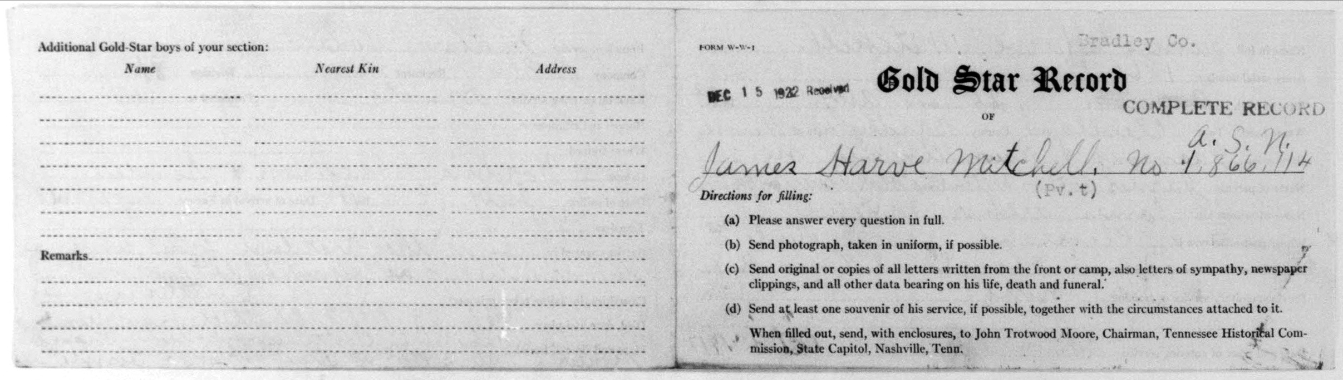 Additional Gold-Star boys of your section:
Name Nearest Kin Address
Remarks
FORM W-W-1
Bradley Co.
Gold Star Record
DEC 15 1922 Received
COMPLETE RECORD
OF
A. S. N.
James Harve Mitchell. No 1,866,114
(Pv.t)
Directions for filling:
(a) Please answer every question in full.
(b) Send photograph, taken in uniform, if possible.
(c) Send original or copies of all letters written from the front or camp, also letters of sympathy, newspaper
clippings, and all other data bearing on his life, death and funeral.
(d) Send at least one souvenir of his service, if possible, together with the circumstances attached to it.
When filled out, send, with enclosures, to John Trotwood Moore, Chairman, Tennessee Historical Com-
mission, State Capitol, Nashville, Tenn.